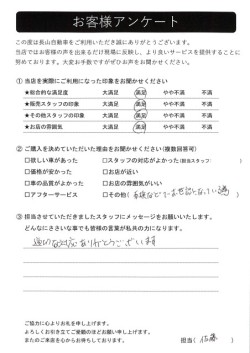 お客様アンケート
この度は長山自動車をご利用いただき誠にありがとうございます。
当店ではお客様の声を出来るだけ現場に反映し、より良いサービスを提供することに
努めております。大変お手数ですがぜひお声をお聞かせください。
① 当店を実際にご利用になった印象をお聞かせください
★総合的な満足度 大満足 満足 やや不満 不満
★販売スタッフの印象 大満足 満足 やや不満 不満
★その他スタッフの印象 大満足 満足 やや不満 不満
★お店の雰囲気 大満足 満足 やや不満 不満
② ご購入を決めていただいた理由をお聞かせください(複数回答可)
□欲しい車があった □スタッフの対応がよかった(担当スタッフ: )
□価格が安かった □お店が近い
□車の品質がよかった □お店の雰囲気がいい
□アフターサービス □その他(
③ 担当させていただきましたスタッフにメッセージをお願いいたします。
どんなにささいな事でも皆様の言葉が私共の力になります。
対応ありがとうございます
ご協力に心よりお礼を申し上げます。
よろしくお引き立てご愛顧のほどお願い申し上げます。
またのご来店を心からお待ちしております。
担当( 佐藤 )